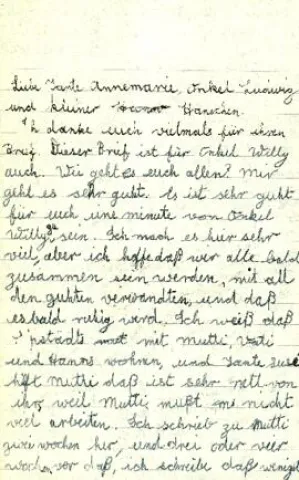 Liebe Tante Annemarie, Onkel Ludwig
und kleiner Hänschen.
Ich danke euch vielmals für ihren
Brief. Dieser Brief ist für Onkel Willy
auch. Wie geht es euch allen? Mir
geht es sehr guht. Es ist sehr guht
für euch uns minute von Onkel
Willy zu sein. Ich mach es hier sehr
viel, aber ich hoffe daß wer alle bald
zusammen sein werden, mit all
den guhten verwandten, und daß
es bald ruhig werd. Ich weiß daß
mit Mutti, Vati
und Hanns wohnen, und Tante Suse
hilft Mutti daß ist sehr nett von
ihr, weil Mutti mußt nicht
viel arbeiten. Ich schrieb zu Mutti
zwei wochen her, und drei oder vier
wochen vor daß, ich schreibe daß wenigst